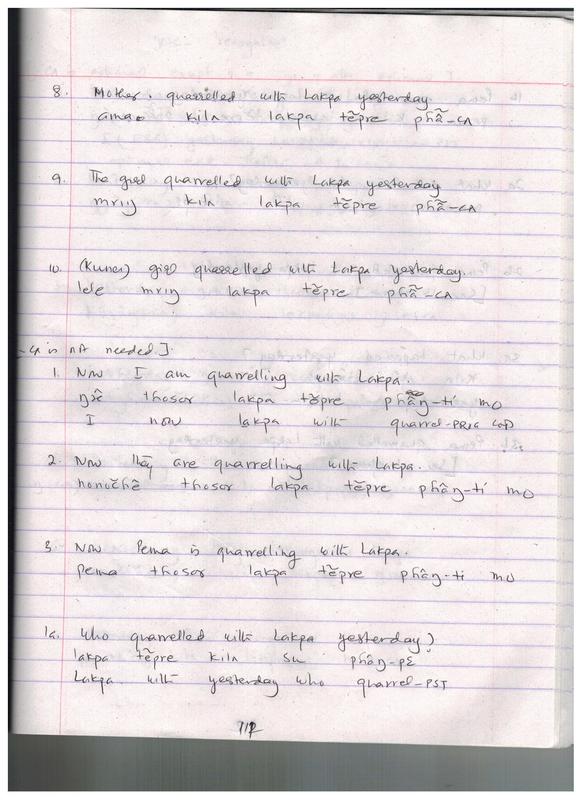 8. Mother quarrelled with Lakpa yesterday
amao kiln lakpa tẽpre phã̂-cʌ
9. The girl quarrelled with Lakpa yesterday
mriŋ kiln lakpa tẽpre phã̂-cʌ
10. (Kumari) girl quarrelled with Lakpa yesterday.
lele mriŋ lakpa tẽpre phã̂-cʌ
-cʌ is not needed].
1. Now I am quarrelling with Lakpa.
thosor lakpa tẽpre phâŋ-ti mo
I now lakpa with quarrel-PROG COP
2. Now they are quarrelling with Lakpa.
thosor lakpa tẽpre phâŋ-ti mo
3. Now Pema is quarrelling with Lakpa.
pema thosor lakpa tẽpre phâŋ-ti mo
1a. Who quarrelled with Lakpa yesterday?
lakpa tẽpre kiln su phâŋ-pɛ
Lakpa with yesterday who quarrel-PST